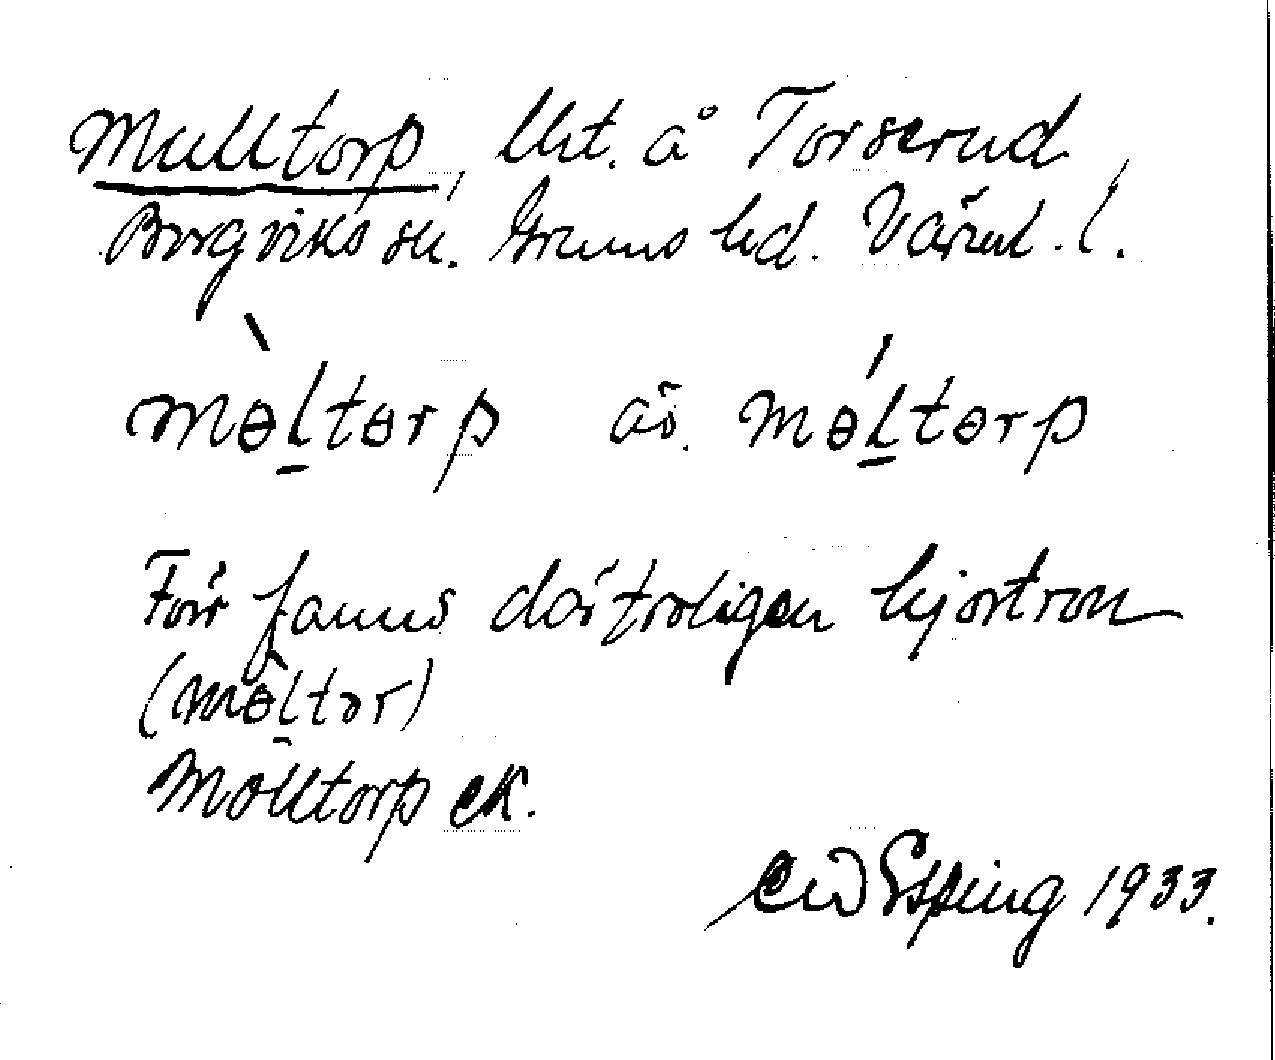 Mulltorp, lht. å Torserud,
Borgviks sn. Grums hd. Värml. l.
mɵ̀l̠tɵrp äv. mɵ́l̠tɵrp
Förr fanns där troligen hjortron
(mɵ̀l̠tɵr)
Molltorp ek.
Esping 1933.